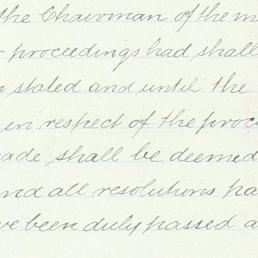 the Chairman of the m
proceedings had shall
stated and until the
in respect of the proc
ade shall be deemed
nd all resolutions pa
ve been duly passed a